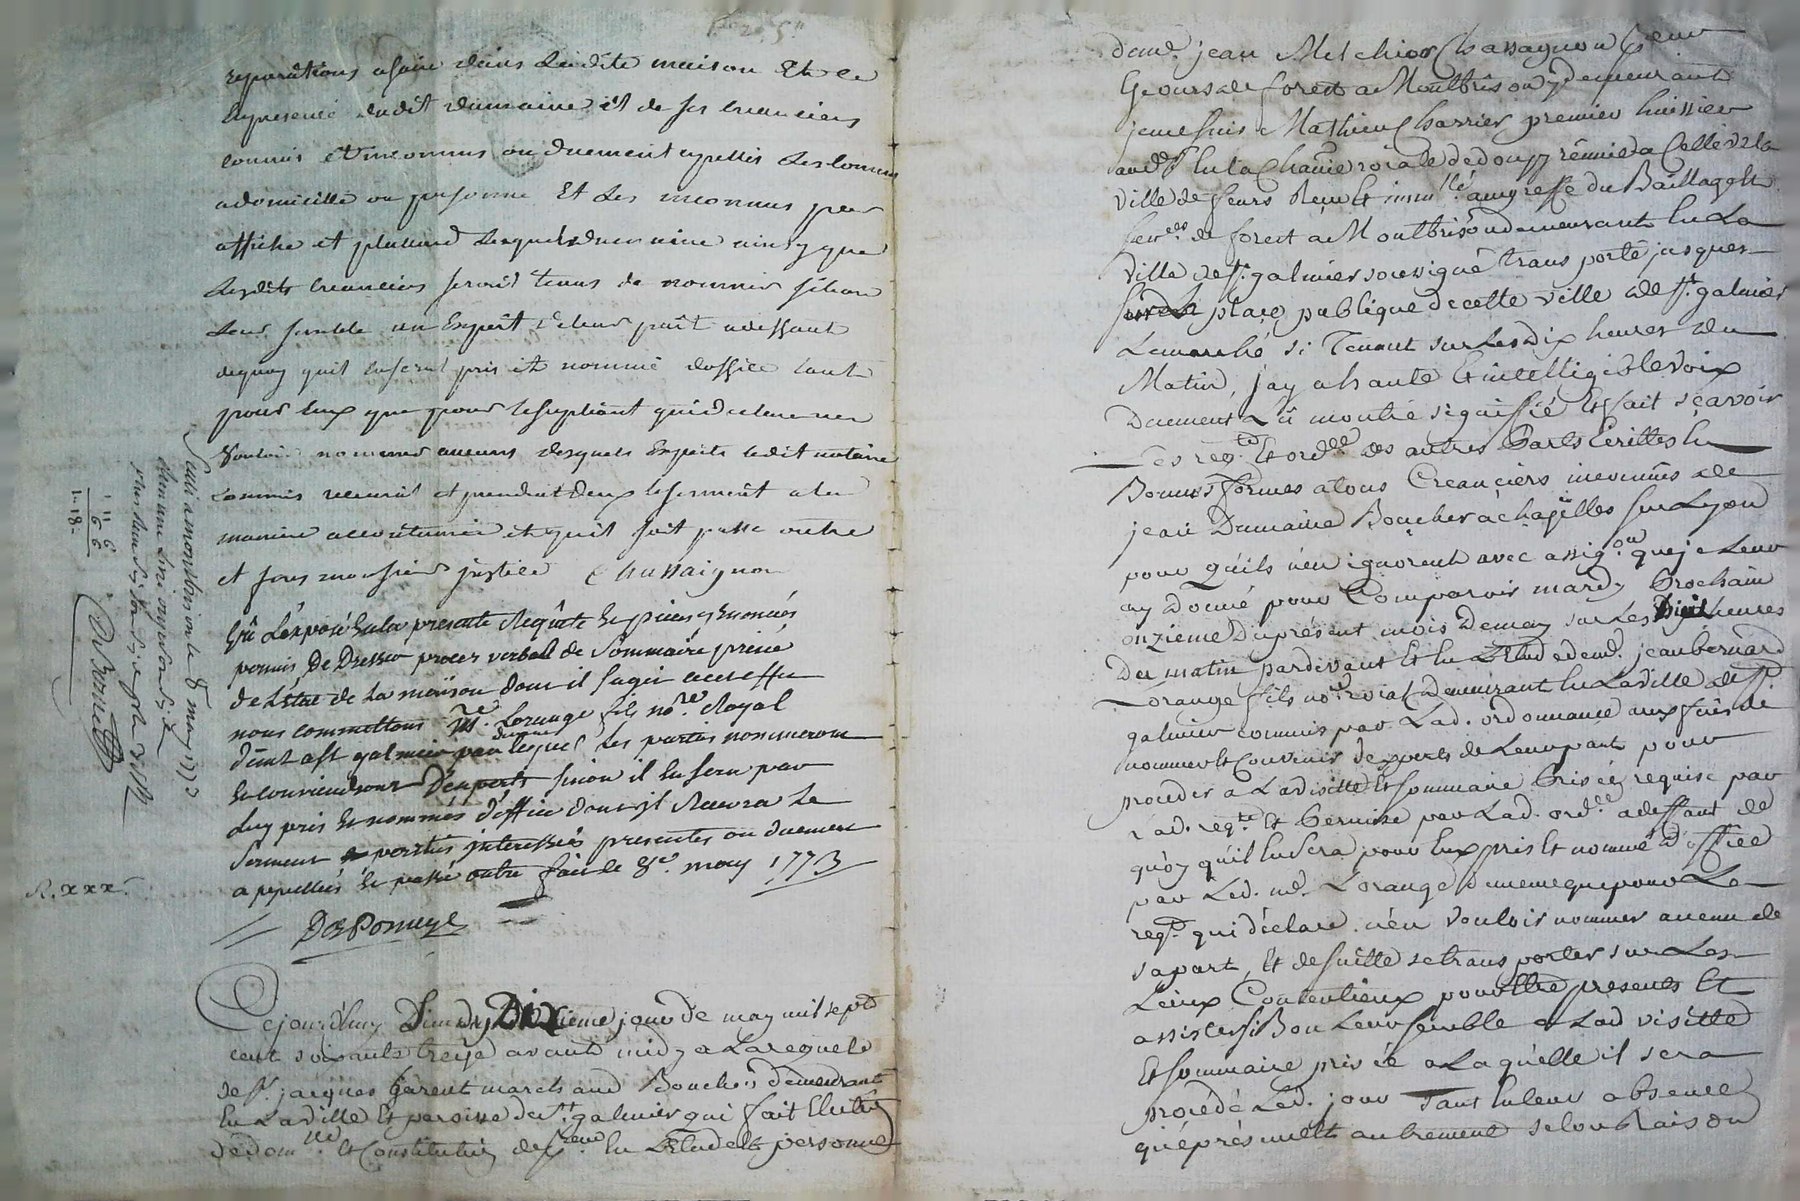 reparations afaire dans Ladite maison Et Ce
En presence dudit dumaine et de ses creanciers
connus et inconnus ou duement appellés Les connus
adomicille ou personne Et Les inconnus par
affiche et
Lesdits creanciers seront tenus de nommer si bon
Leur semble un Expert de leur part adeffaut
dequoy quil En serat pris et nommé doffice tant
pour Eux que pour Lesupliant qui declare ne
Vouloir nommer aucuns desquels Experts ledit notaire
commis recevrat et prendrat deux leserment ala
maniere accoutumée et quil soit passé outre
et ferés monsieur justice Chassaignon
Vû L'exposé Enla presente Requête les pieces y Enoncées
permis De Dresser procès verbal de Sommaire prisée
de L'état de La maison dont il sagit acet effet
nous commettons Me. Lorange fils nore. Royal
Dud. st galmier pardevant lequel les parties nommeront
Et conviendront D'experts sinon il En sera par
Luy pris Et nommés d'office dont il Recevra Le
Serment parties interessées presentes ou duement
appellées Et passé outre fait le 8e. may 1773
DesPomeys
R. xxx s
Scellé a montbrison le 8 may 1773
1. 18.
Cejourd'huy Lundy Dixieme jour de may mil sept
cent soixante treize avant midy a Larequete
de sr. jacques Garent marchand Boucher demeurant
En Laville Et paroisse de st. galmier qui fait Election
de domlle. Et Constitution de Procureur En L'Etude Et personne
deme. jean Melchior Chassagnon Procureur
Es cours de forest a Montbrison y demeurant
je me suis Mathieu Charrier premier huissier
aud. En la Chatnie roiale de donzy réunie a Celle dela
ville de feurs Reçu Et immlé. augreffe du Baillage Et
senées. de forest a Montbrison demeurant En La
ville de st. galmier soussigné transporté jusques
sur La place publique de cette ville de st. galmier
Lemarché si Tenant sur Les dix heures du
Matin, jay a haute Et intelligible voix
Duement Lû montré signiffié Et fait sçavoir
Les reqte. Et ordce. des autres Parts Ecrittes En
Bonnes formes atous Creanciers inconnûs de
jean Dumaine Boucher a chazelles sur Lyon
pour qu'ils n'en ignorent avec assigon. que je Leur
ay Donné pour Comparoir mardy Prochain
onzieme Du présent mois De may sur Les huit heures
Du matin pardevant Et En L'Etude deme. jean bernard
Lorange fils nore. roial demeurant En Laville de st.
galmier commis par Lad. ordonnance aux fins de
nommer Et Convenir d'experts de Leur part pour
proceder a Lavisitte Et Sommaire Prisée requise par
Lad. reqte. Et Permise par Lad. ordce. adeffaut de
quoy qu'il En Sera pour Eux pris Et nommé D'office
par Led. me. Lorange de meme que pour Le
reqt. qui déclare n'en vouloir nommer aucun de
sapart, Et desuitte se transporter sur Les
Lieux Contentieux pour Etre presents Et
assister si Bon Leur semble a Lad. visitte
Et sommaire prisée a Laquelle il sera
procédé Led. jour Tant En leur absence
qu'en présence Et autrement selon Raison